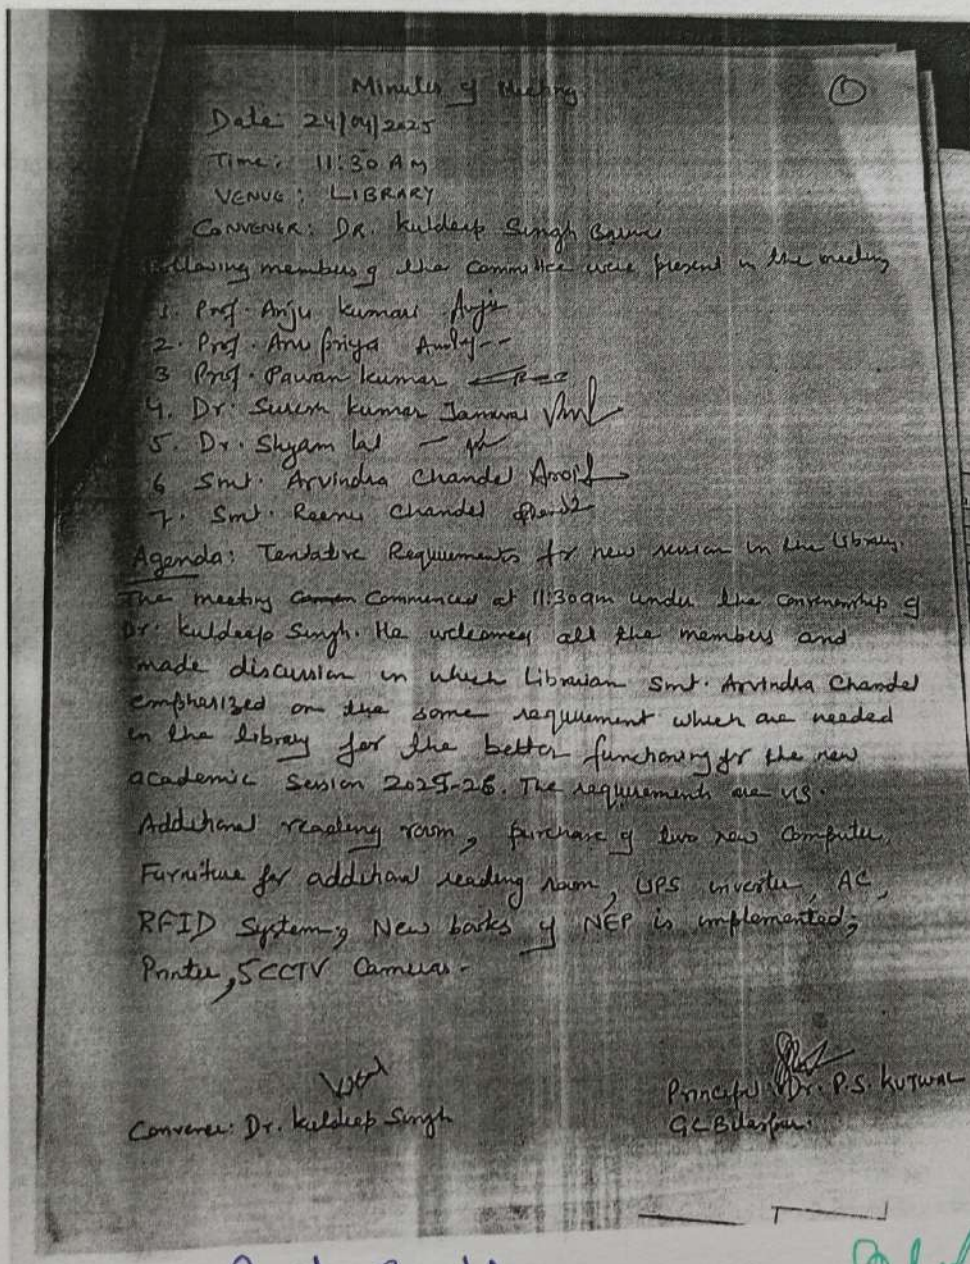 Minutes of Meeting
①
Date: 24/04/2025
Time: 11:30 AM
VENUE: LIBRARY
CONVENER: DR. Kuldeep Singh
Following members of the committee were present in the meeting
1. Prof. Anju Kumari Anju
2. Prof. Anu priya
3 Prof. Pawan Kumar
4. Dr. Suresh Kumar
5. Dr. Shyam lal
6 Smt. Arvindra Chandel
7. Smt. Reenu Chandel
Agenda: Tentative Requirements for new session in the library.
The meeting Commenced at 11:30am under the convenorship of
Dr. Kuldeep Singh. He welcomes all the members and
made discussion in which Librarian Smt. Arvindra Chandel
emphasized on the some requirement which are needed
in the library for the better functioning for the new
academic Session 2025-26. The requirements are viz.
Additional reading room, purchase of two new Computer,
Furniture for additional reading room, UPS inverter, AC,
RFID System, New books if NEP is implemented,
Printer, 5 CCTV Cameras.
Convener: Dr. Kuldeep Singh
Principal Dr. P.S. KUTWAL
GC Bilaspur.